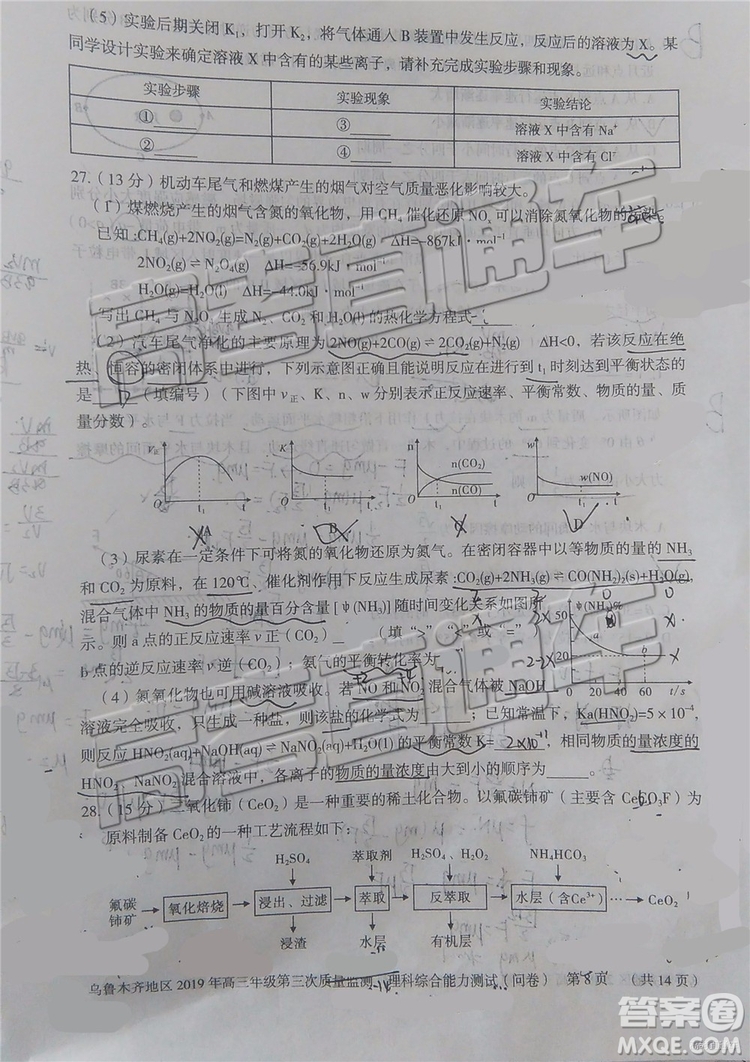 (5)实验后期关闭 K₁,打开 K₂,将气体通入 B 装置中发生反应,反应后的溶液为 X。某
同学设计实验来确定溶液 X 中含有的某些离子,请补充完成实验步骤和现象。
实验步骤 实验现象 实验结论
①______ ③______ 溶液 X 中含有 Na⁺
②______ ④______ 溶液 X 中含有 Cl⁻
27.(13 分)机动车尾气和燃煤产生的烟气对空气质量恶化影响较大。
(1)煤燃烧产生的烟气含氮的氧化物,用 CH₄ 催化还原 NOₓ 可以消除氮氧化物的
已知:CH₄(g)+2NO₂(g)=N₂(g)+CO₂(g)+2H₂O(g) ΔH=-867kJ·mol⁻¹
2NO₂(g)⇌N₂O₄(g) ΔH=-56.9kJ·mol⁻¹
H₂O(g)=H₂O(l) ΔH=-44.0kJ·mol⁻¹
写出 CH₄ 与 N₂O₄ 生成 N₂、CO₂ 和 H₂O(l)的热化学方程式
(2)汽车尾气净化的主要原理为 2NO(g)+2CO(g)⇌2CO₂(g)+N₂(g) ΔH<0,若该反应在绝
热、恒容的密闭体系中进行,下列示意图正确且能说明反应在进行到 t₁ 时刻达到平衡状态的
是______(填编号)(下图中 v正、K、n、w 分别表示正反应速率、平衡常数、物质的量、质
量分数)。
v正 K n n(CO₂) w(NO)
n(CO)
O t₁ t O t₁ t O t₁ t O t₁ t
A B C D
(3)尿素在一定条件下可将氮的氧化物还原为氮气。在密闭容器中以等物质的量的 NH₃
和 CO₂ 为原料,在 120℃、催化剂作用下反应生成尿素:CO₂(g)+2NH₃(g)⇌CO(NH₂)₂(s)+H₂O(g),
混合气体中 NH₃ 的物质的量百分含量[ψ(NH₃)]随时间变化关系如图所
示。则 a 点的正反应速率 v正(CO₂)______(填“>”“<”或“=”)
b 点的逆反应速率 v逆(CO₂);氨气的平衡转化率为
ψ(NH₃)%
50
a
0 20 40 60 t/s
(4)氮氧化物也可用碱溶液吸收。若 NO 和 NO₂ 混合气体被 NaOH
溶液完全吸收,只生成一种盐,则该盐的化学式为______;已知常温下,Ka(HNO₂)=5×10⁻⁴,
则反应 HNO₂(aq)+NaOH(aq)⇌NaNO₂(aq)+H₂O(l)的平衡常数 K=______,相同物质的量浓度的
HNO₂、NaNO₂ 混合溶液中,各离子的物质的量浓度由大到小的顺序为______。
28.(15 分)二氧化铈(CeO₂)是一种重要的稀土化合物。以氟碳铈矿(主要含 CeCO₃F)为
原料制备 CeO₂ 的一种工艺流程如下:
H₂SO₄ 萃取剂 H₂SO₄、H₂O₂ NH₄HCO₃
氟碳铈矿 → 氧化焙烧 → 浸出、过滤 → 萃取 → 反萃取 → 水层(含Ce³⁺) → …→ CeO₂
浸渣 水层 有机层
乌鲁木齐地区 2019 年高三年级第三次质量监测 理科综合能力测试(问卷) 第 8 页 (共 14 页)
高考直通车
高考直通车
答案圈
MXQE.COM